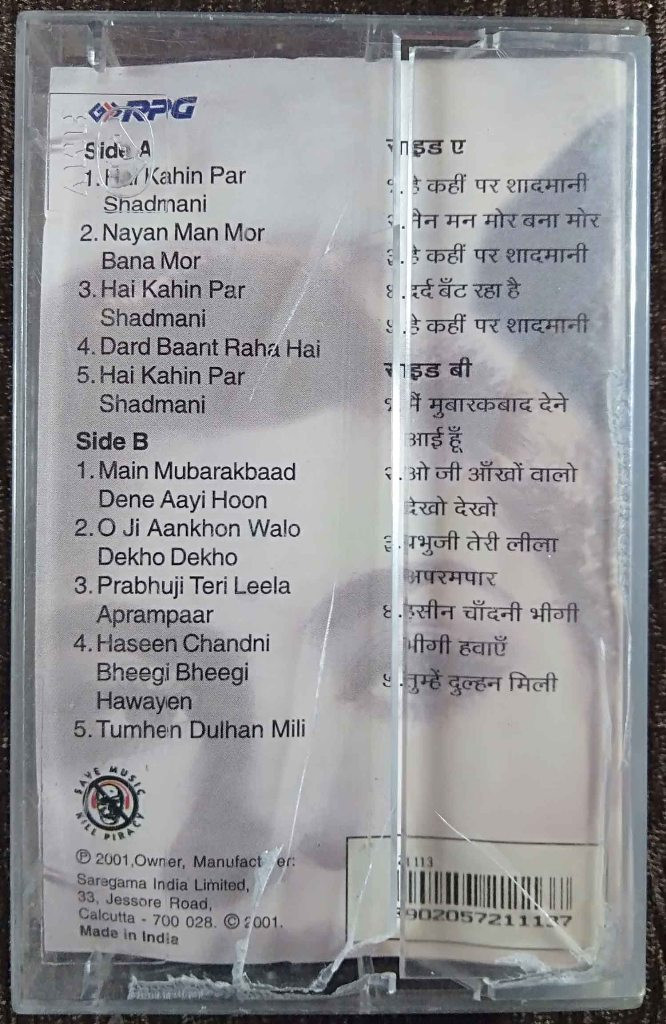 RPG
Side A
1. Hai Kahin Par
Shadmani
2. Nayan Man Mor
Bana Mor
3. Hai Kahin Par
Shadmani
4. Dard Baant Raha Hai
5. Hai Kahin Par
Shadmani
Side B
1. Main Mubarakbaad
Dene Aayi Hoon
2. O Ji Aankhon Walo
Dekho Dekho
3. Prabhuji Teri Leela
Aprampaar
4. Haseen Chandni
Bheegi Bheegi
Hawayen
5. Tumhen Dulhan Mili
SAVE MUSIC
KILL PIRACY
℗ 2001, Owner, Manufacturer:
Saregama India Limited,
33, Jessore Road,
Calcutta - 700 028. © 2001.
Made in India
साइड ए
१. है कहीं पर शादमानी
२. नैन मन मोर बना मोर
३. है कहीं पर शादमानी
४. दर्द बँट रहा है
५. है कहीं पर शादमानी
साइड बी
१. मैं मुबारकबाद देने
आई हूँ
२. ओ जी आँखों वालो
देखो देखो
३. प्रभुजी तेरी लीला
अपरमपार
४. हसीन चाँदनी भीगी
भीगी हवाएँ
५. तुम्हें दुल्हन मिली